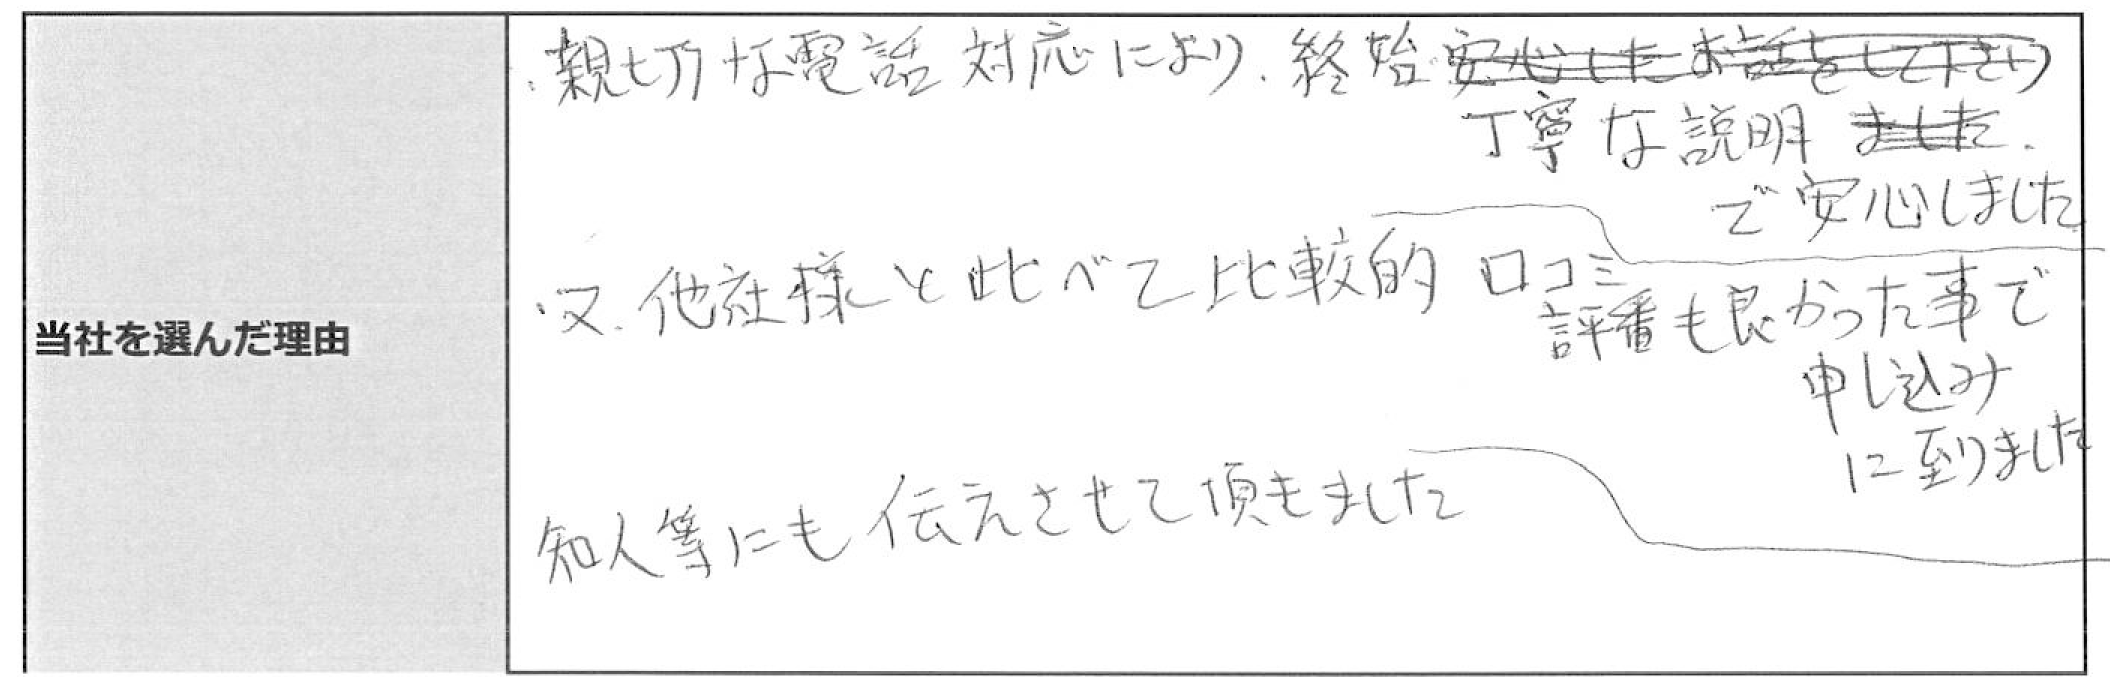 当社を選んだ理由
・親切な電話対応により、終始安心したお話をして下さり
丁寧な説明ました.
で安心しました
・又、他社様と比べて比較的口コミ
評番も良かった事で
申し込み
に至りました
知人等にも伝えさせて頂きました